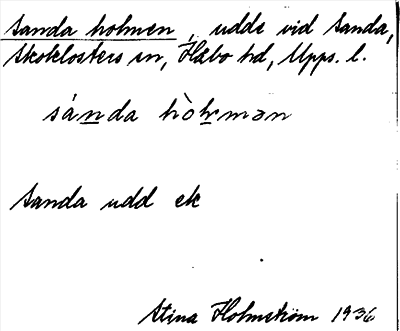 Sanda holmen, udde vid Sanda,
Skoklosters sn, Håbo hd, Upps. l.
sánda hòlmən
Sanda udd ek
Stina Holmström 1936